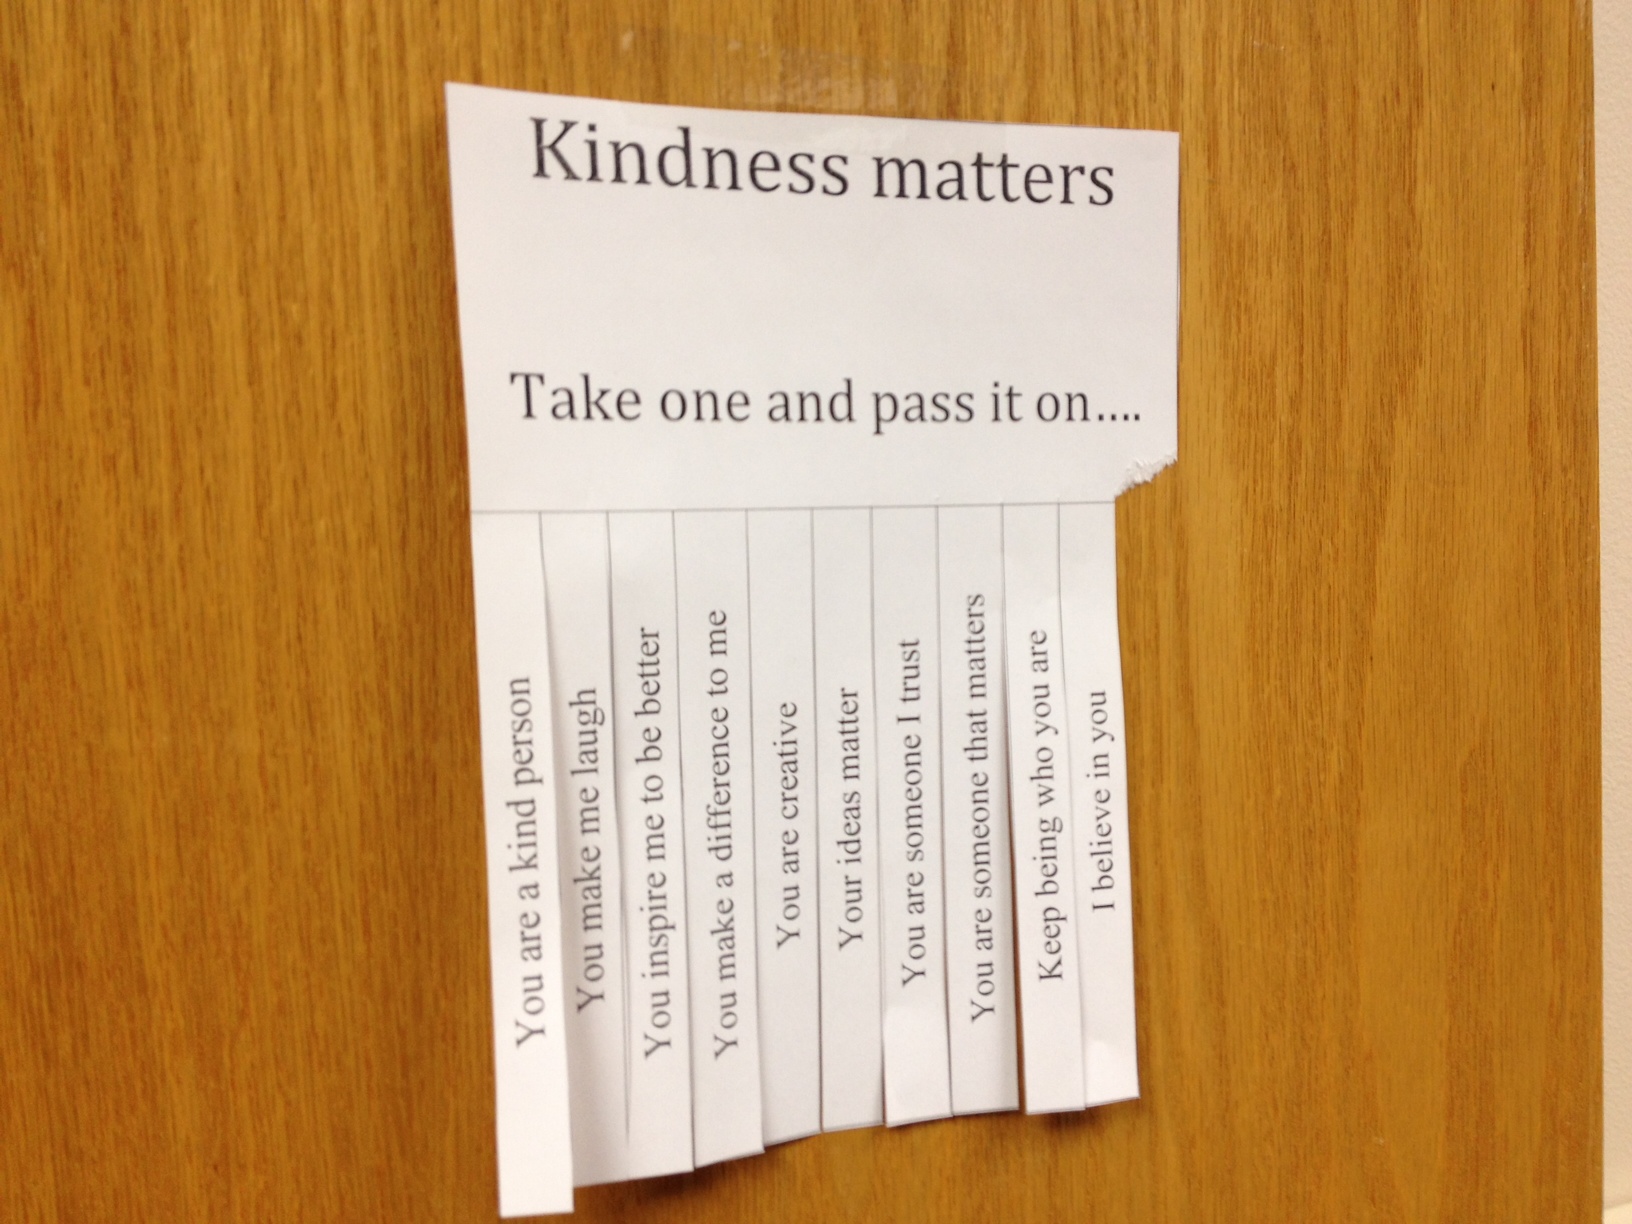 Kindness matters
Take one and pass it on....
You are a kind person
You make me laugh
You inspire me to be better
You make a difference to me
You are creative
Your ideas matter
You are someone I trust
You are someone that matters
Keep being who you are
I believe in you